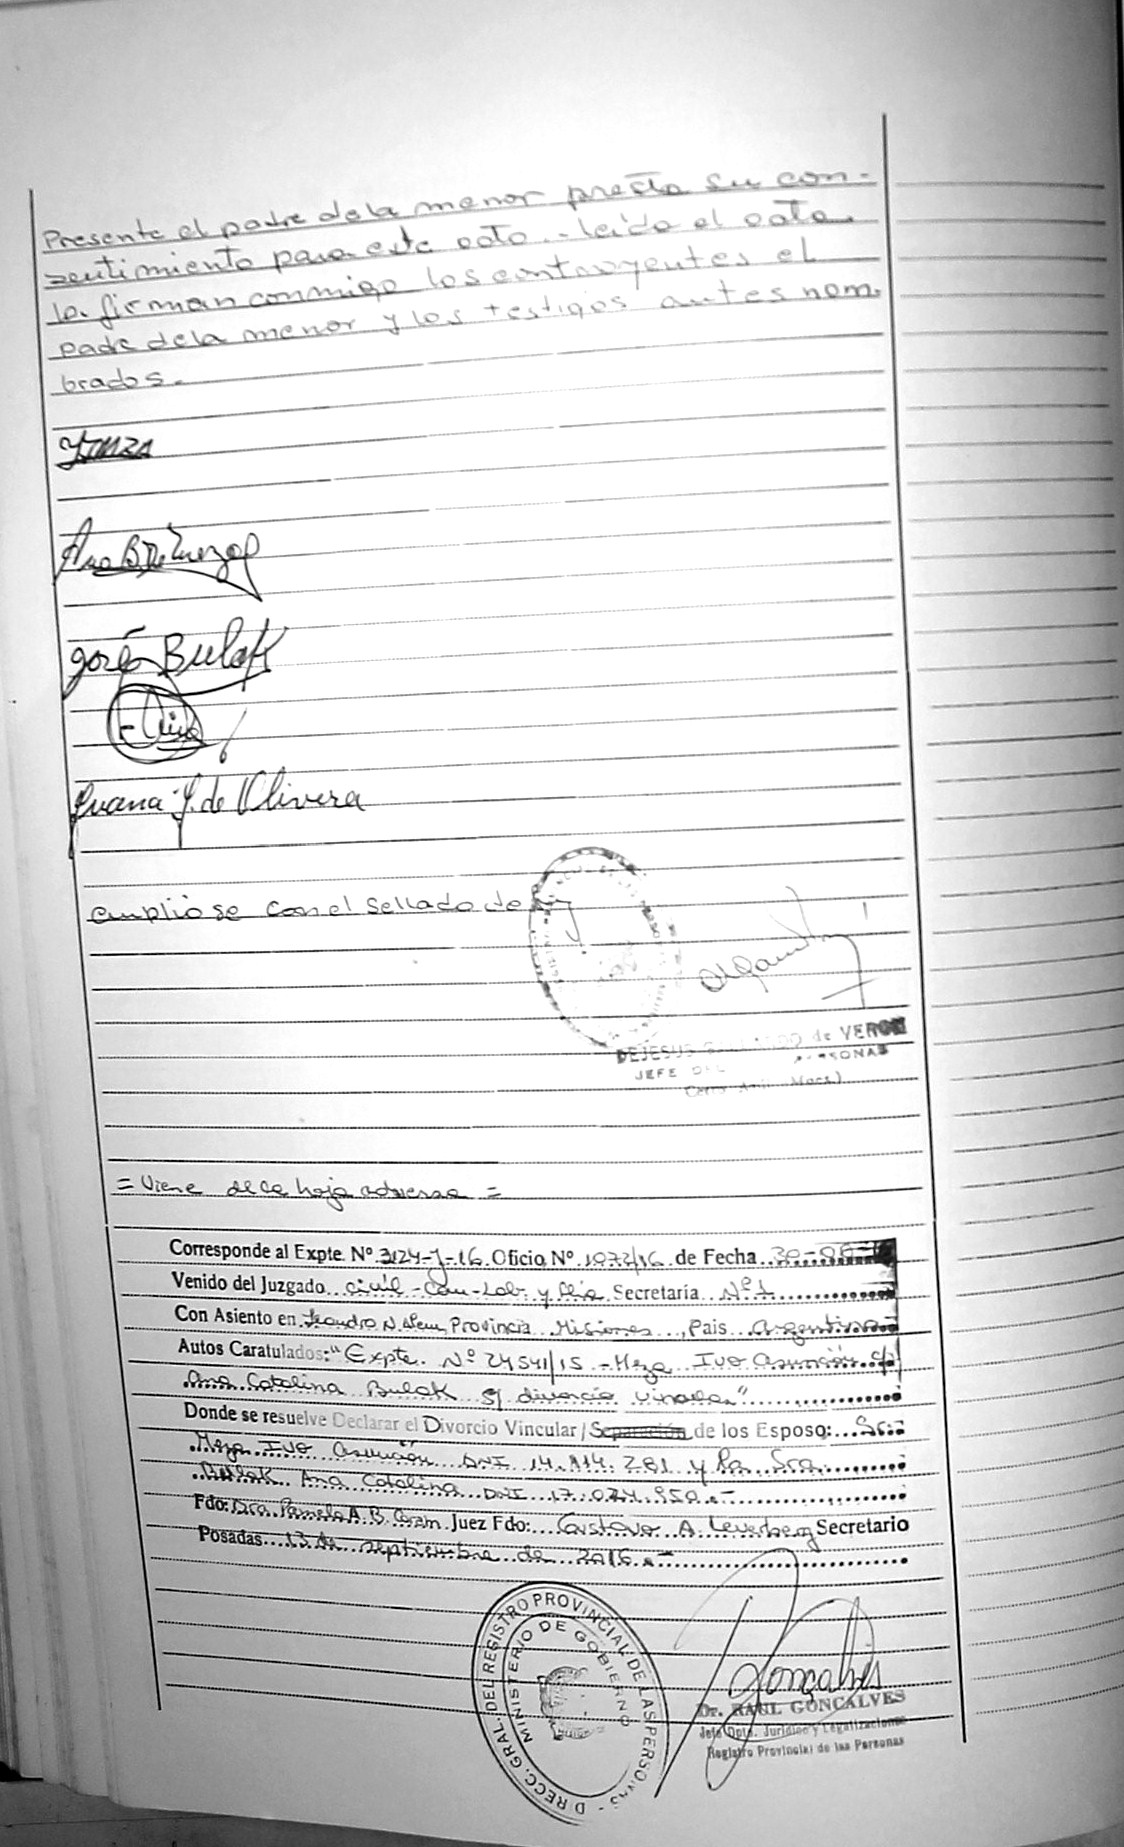 Presente el padre de la menor presta su con-
sentimiento para este acto.- leída el acta
la firman conmigo los contrayentes el
padre de la menor y los testigos antes nom
brados.-
Ana B. de
José Bulak
Juana J. de Olivera
cumpliose con el sellado de ley
DEJESUS de VERON
JEFE PERSONAS
= Viene de la hoja adversa =
Corresponde al Expte. Nº 3124-J-16 Oficio Nº 1072/16 de Fecha 30-08-
Venido del Juzgado civil-Com-Lab. y Flia Secretaría Nº 1
Con Asiento en Leandro N. Alem, Provincia Misiones, Pais Argentina
Autos Caratulados: "Expte. Nº 24541/15 - Meza Ivo Asunción c/
Ana Catalina Bulak s/ divorcio vincular"
Donde se resuelve Declarar el Divorcio Vincular / Separación de los Esposo: Sr.
Meza Ivo Asunción DNI 14.114.281 y la Sra.
Bulak Ana Catalina DNI 17.024.950.-
Fdo: Dra. Pamela A. B. Juez Fdo: Gustavo A. Secretario
Posadas 13 de septiembre de 2016.-
DIRECC. GRAL. DEL REGISTRO PROVINCIAL DE LAS PERSONAS -
MINISTERIO DE GOBIERNO
Misiones
Gonçalves
Dr. RAUL GONCALVES
Jefe Dpto. Jurídico y Legalizaciones
Registro Provincial de las Personas